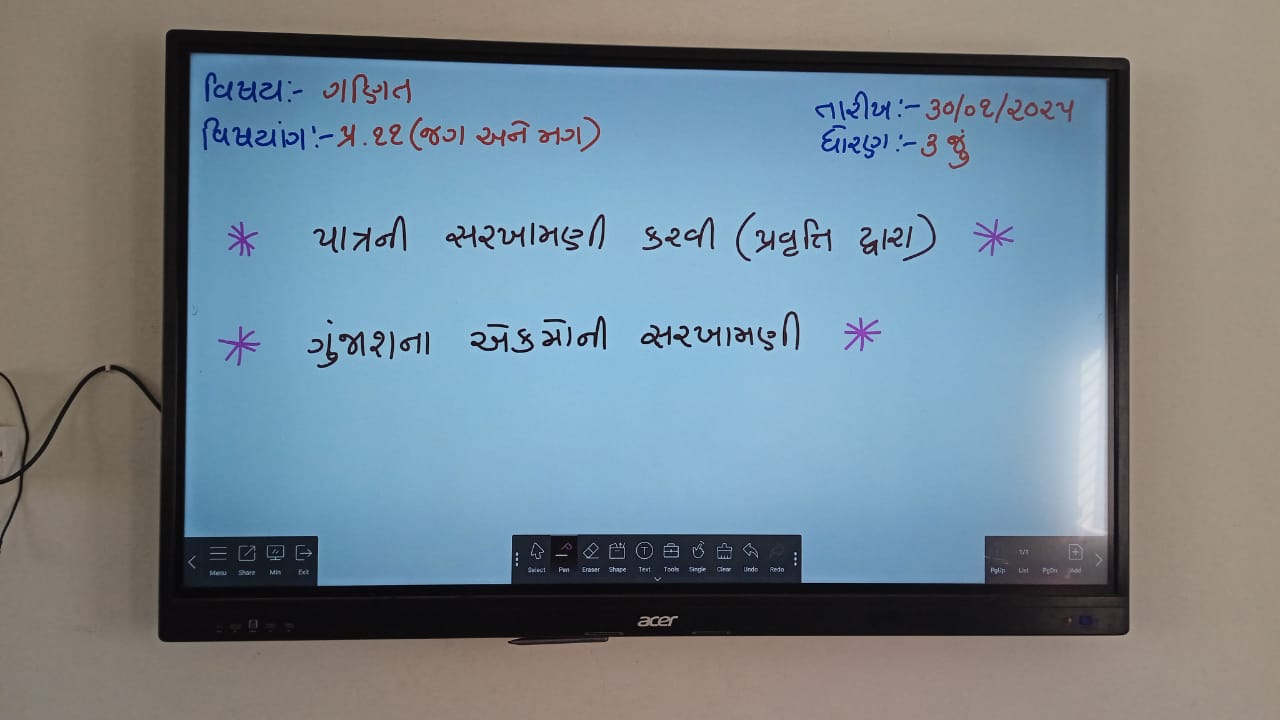 વિષય:- ગણિત
વિષયાંગ:- પ્ર.૧૧ (જગ અને મગ)
તારીખ:- ૩૦/૦૧/૨૦૨૫
ધોરણ:- ૩ જું
* પાત્રની સરખામણી કરવી (પ્રવૃત્તિ દ્વારા) *
* ગુંજાશના એકમોની સરખામણી *
Menu Share Min Exit
Select Pen Eraser Shape Text Tools Single Clear Undo Redo
1/1
PgUp List PgDn Add
acer